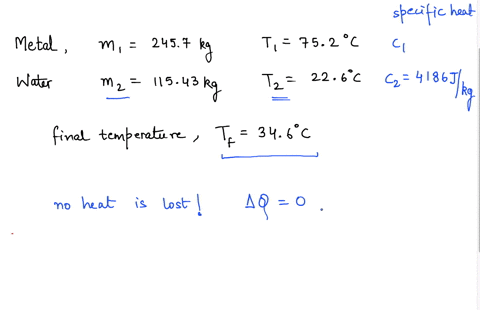 specific heat
Metal, m₁ = 245.7 kg T₁ = 75.2°C C₁
Water m₂ = 115.43 kg T₂ = 22.6°C C₂ = 4186 J/kg
final temperature, T_F = 34.6°C
no heat is lost! ΔQ = 0.